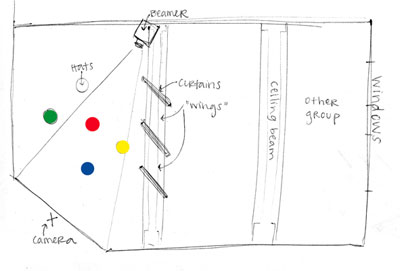 BEAMER
curtains
"wings"
ceiling beam
other
group
windows
camera